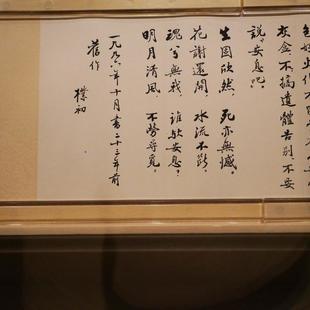 灰盒不搞遺體告別不要
說安息吧。
生固欣然,死亦無憾。
花謝還開,水流不斷。
魂兮無我,誰歟安息?
明月清風,不勞尋覓。
一九九六年十月書二十三年前
舊作
樸初